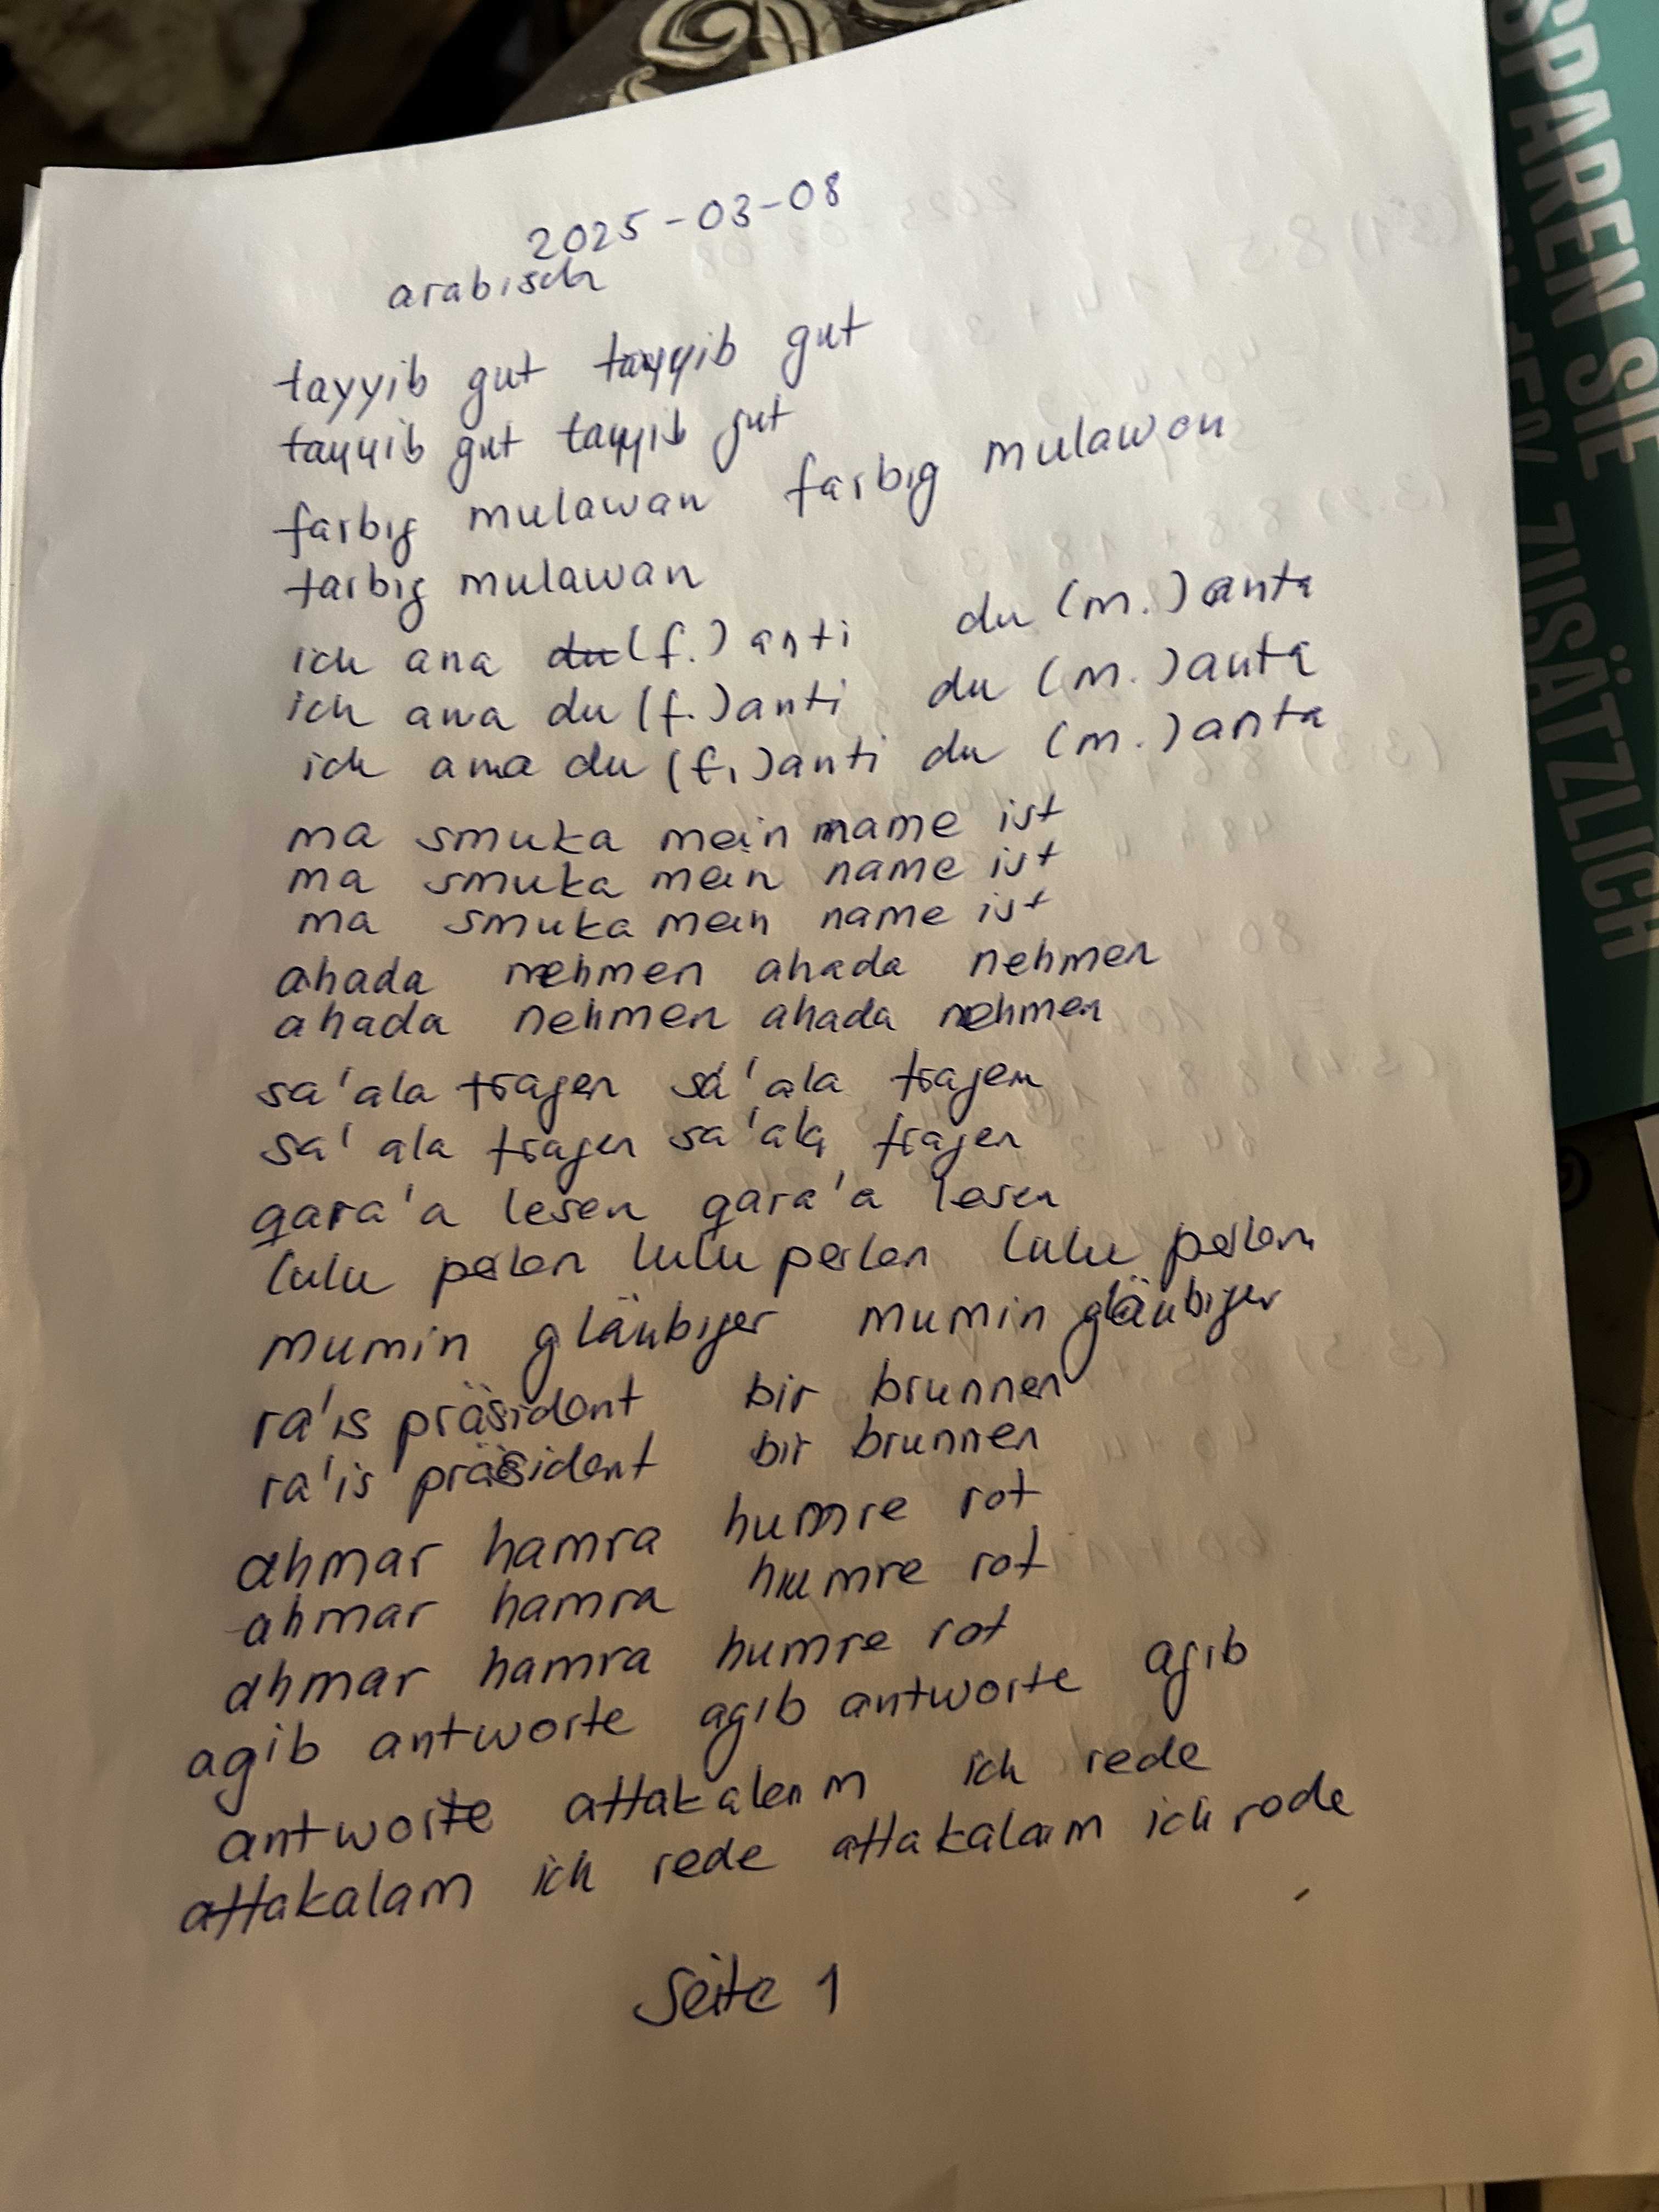 2025-03-08
arabisch
tayyib gut tayyib gut
tayyib gut tayyib gut
farbig mulawan farbig mulawon
farbig mulawan
ich ana du (f.) anti du (m.) anta
ich ana du (f.) anti du (m.) anta
ich ana du (f.) anti du (m.) anta
ma smuka mein name ist
ma smuka mein name ist
ma smuka mein name ist
ahada nehmen ahada nehmen
ahada nehmen ahada nehmen
sa'ala fragen sa'ala fragen
sa'ala fragen sa'ala fragen
qara'a lesen qara'a lesen
lulu perlen lulu perlen lulu perlen
mumin gläubiger mumin gläubiger
ra'is präsident bir brunnen
ra'is präsident bir brunnen
ahmar hamra humre rot
ahmar hamra humre rot
ahmar hamra humre rot
agib antworte agib antworte agib
antworte attakalem ich rede
attakalam ich rede attakalam ich rede
Seite 1
SPAREN SIE
ZUSÄTZLICH